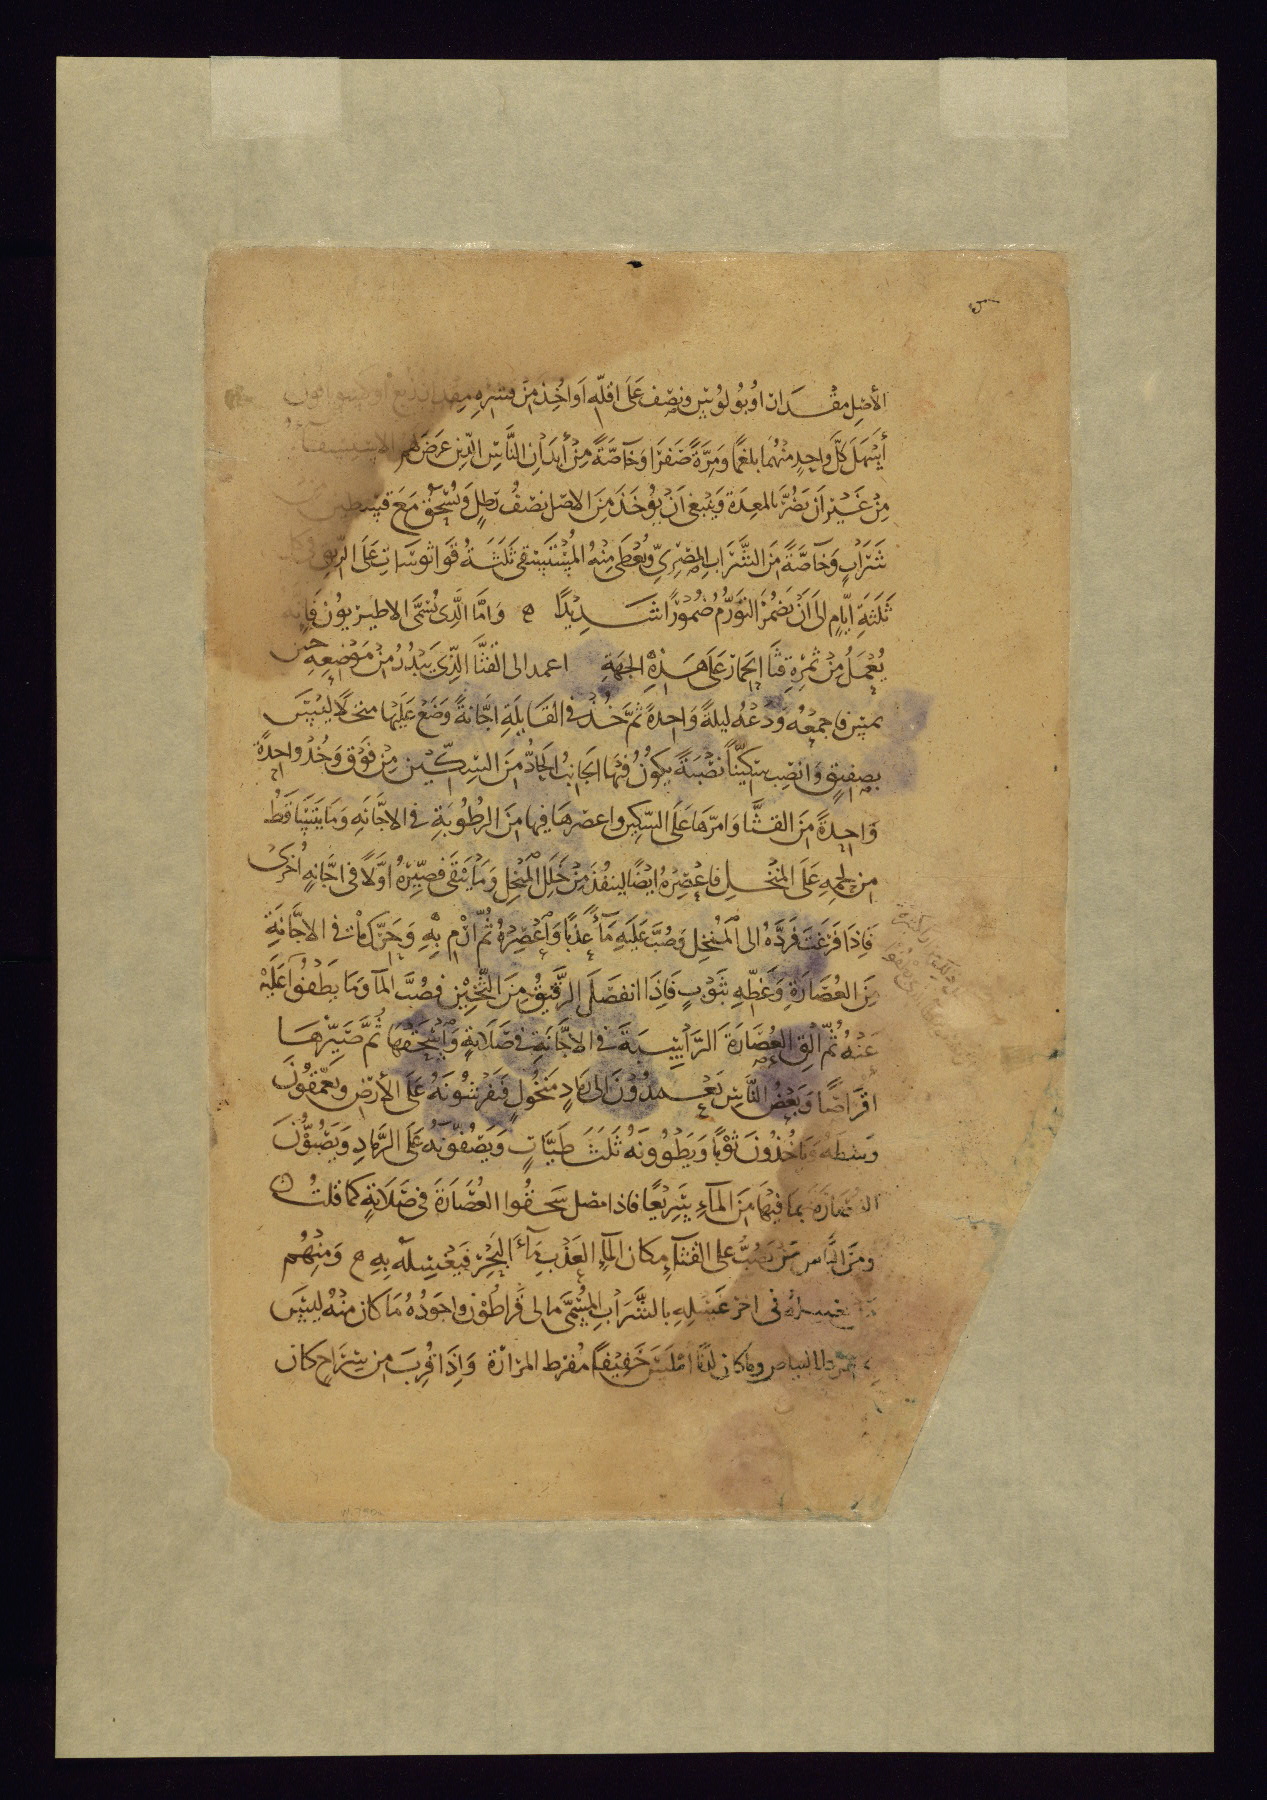 الأصْلِ مقْدَارَ اوُبُولُوسَيْن ونِصْف عَلَى اقلّهِ اَوَاُخِذَ مِنْ قشرِهِ مِقدَارَ رُبع اكسوبافون
أسْهَلَ كلَّ واحِدٍ منْهُمَا بلغمًا وَمِرَّةً صَفرَا وَخآصَّةً مِنْ أبدَانِ النَّاسِ الّذين عَرَضَ لهُم الاستسقآءُ
مِنْ غَيْرِ اَن يَضُرَّ بالمعِدَة وَيَنْبغى اَنْ يُؤخَذَ مِنَ الاصْل نِصْفُ رطلٍ وَيُسْحَق مَعَ قسطين مِن
شَرَابٍ وَخآصَّةً مِنَ الشَّرَابِ المِصْرِىّ وَيُعْطَى مِنْهُ المُسْتَسقى ثَلثَةُ قوَاثوسَاتٍ عَلَى الرّيق فى كل
ثَلثَةِ ايّامٍ الى اَنْ يَضمُرَ التوَرُّمُ ضُمُوْرًا شَدِيْدًا ه وَامَّا الَّذِى يُسَمَّى الاطيريُون فَاِنه
يُعْمَلُ مِنْ ثمرةِ قثّا الحِمَار عَلَى هَذِهِ الجهَةِ اعمد الى القثَّا الّذِى يَبْدُرُ مِنْ مَوْضِعِهِ حين
يمسّ فاجمعْهُ وَدَعْهُ ليلةً وَاحِدةً ثمَّ خُذْ فى القَابِلَةِ اجّانَةً وَضَعْ عَلَيْهَا منخلًا ليْسَ
بصفيقٍ وَانصِب سِكّينًا نَصْبَةً يَكُونُ فيهَا الجَانِبُ الحَادُّ مِنَ السِكّيْن مِنْ فَوْق وَخُذْ واحِدةً
وَاحِدةً مِنَ القثَّا وَامرّهَا عَلَى السّكين واعصرهَا فيها مِنَ الرطُوبَةِ فى الاجَّانَهِ وَمَا يَتَسَاقطُ
مِن لحمِهِ عَلَى المُنْخلِ فاعْصِرْهُ ايْضًا لينفُذَ مِنْ خَلَلِ المُنْخل وَمَا يَبْقَى فصيّرهُ اوَّلًا فى اجَّانهٍ اُخْرَى
فَاِذَا فَرَغتَ فَرَدَّهُ الى المُنخل وَصُبَّ عَلَيهِ مَآءً عَذبًا وَاعْصِرْهُ ثُمّ ارْمِ بهِ وَحَرّك مَا فى الاجَّانَةِ
مِنَ العُصَارَةِ وَغَطّهِ بثوْبٍ فَاِذَا انفصَلَ الرَّقيْقُ مِنَ الثّخِيْن فصُبَّ المآ وَمَا يَطفُوا عَلَيْهِ
عَنْهُ ثُمّ الْقِ العُصَارَةَ الرَّاسِبَةَ فى الاجَّانَةِ فى صَلَايَةٍ وَاسْحَقْهَا ثُمَّ صَيّرْهَا
اقرَاصًا وَبَعْضُ النَّاسِ يَعْمِدُوْنَ الى رَمَادٍ مَنخُولٍ فيَفرشُونَهُ عَلَى الأرْضِ ويعمّقُونَ
وَسَطه وَيَاخُذُونَ ثَوْبًا وَيَطوُونَهُ ثَلثَ طَيَّاتٍ وَيَصُفّونهُ عَلَى الرَّمَادِ وَيَصُبّوْنَ
العُصَارَةَ بمَا فيْهَا مِنَ المآءِ سَرِيْعًا فاذا مصل سَحَقُوا العُصَارَةَ فى صَلَايَةٍ كمَا قلتُ
ومِنَ النَّاس مَنْ يَصُبُّ على القثآء مكان المآءِ العَذْبِ مآءَ البَحْر فيَغْسِلهُ بِهِ ه وَمنْهُم
مَنْ يغسلهُ فى اخر غَسْلِهِ بالشَّرَابِ المُسَمَّى مالى قراطُوْن واجودُهُ مَا كان مِنْهُ ليْسَ
بمفرط البياض وماكان لدنًا امْلَسَ خَفِيْفًا مُفرط المرَارَة وَاِذَا قُرِبَ مِن سِرَاج كان